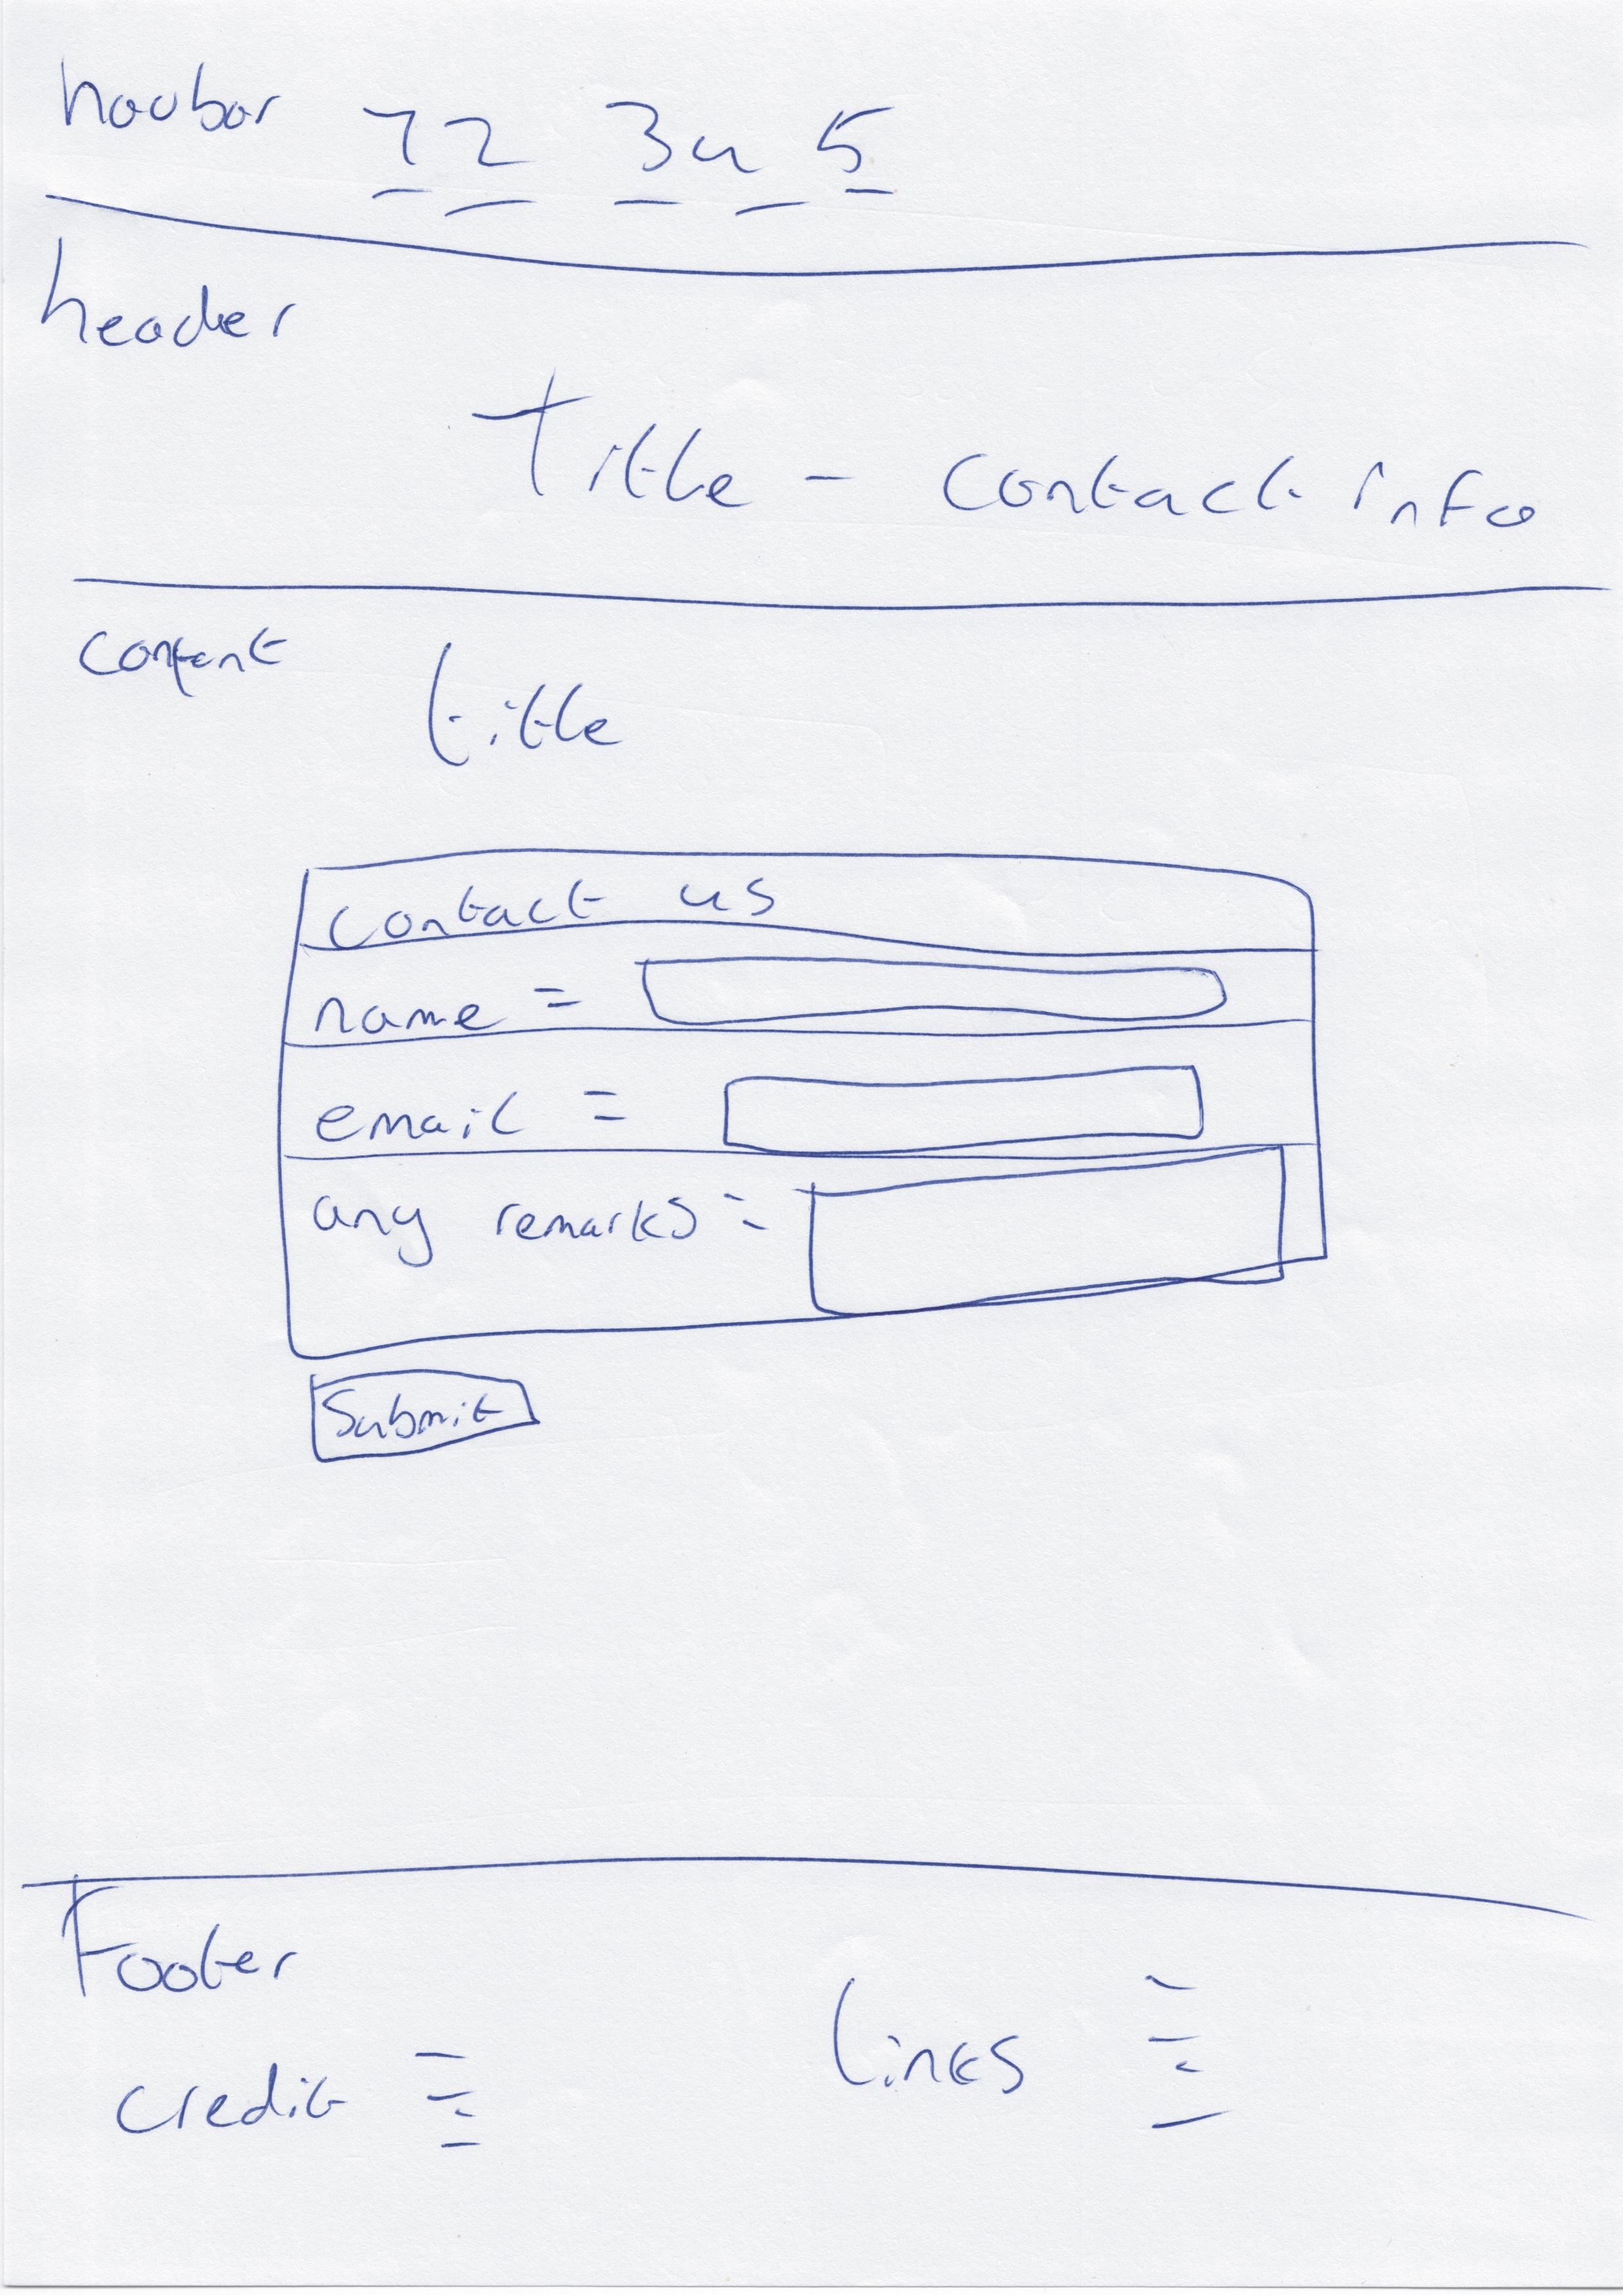 navbar 1 2 3 4 5
header
Title - contact info
content title
contact us
name =
email =
any remarks =
Submit
Footer
credit links